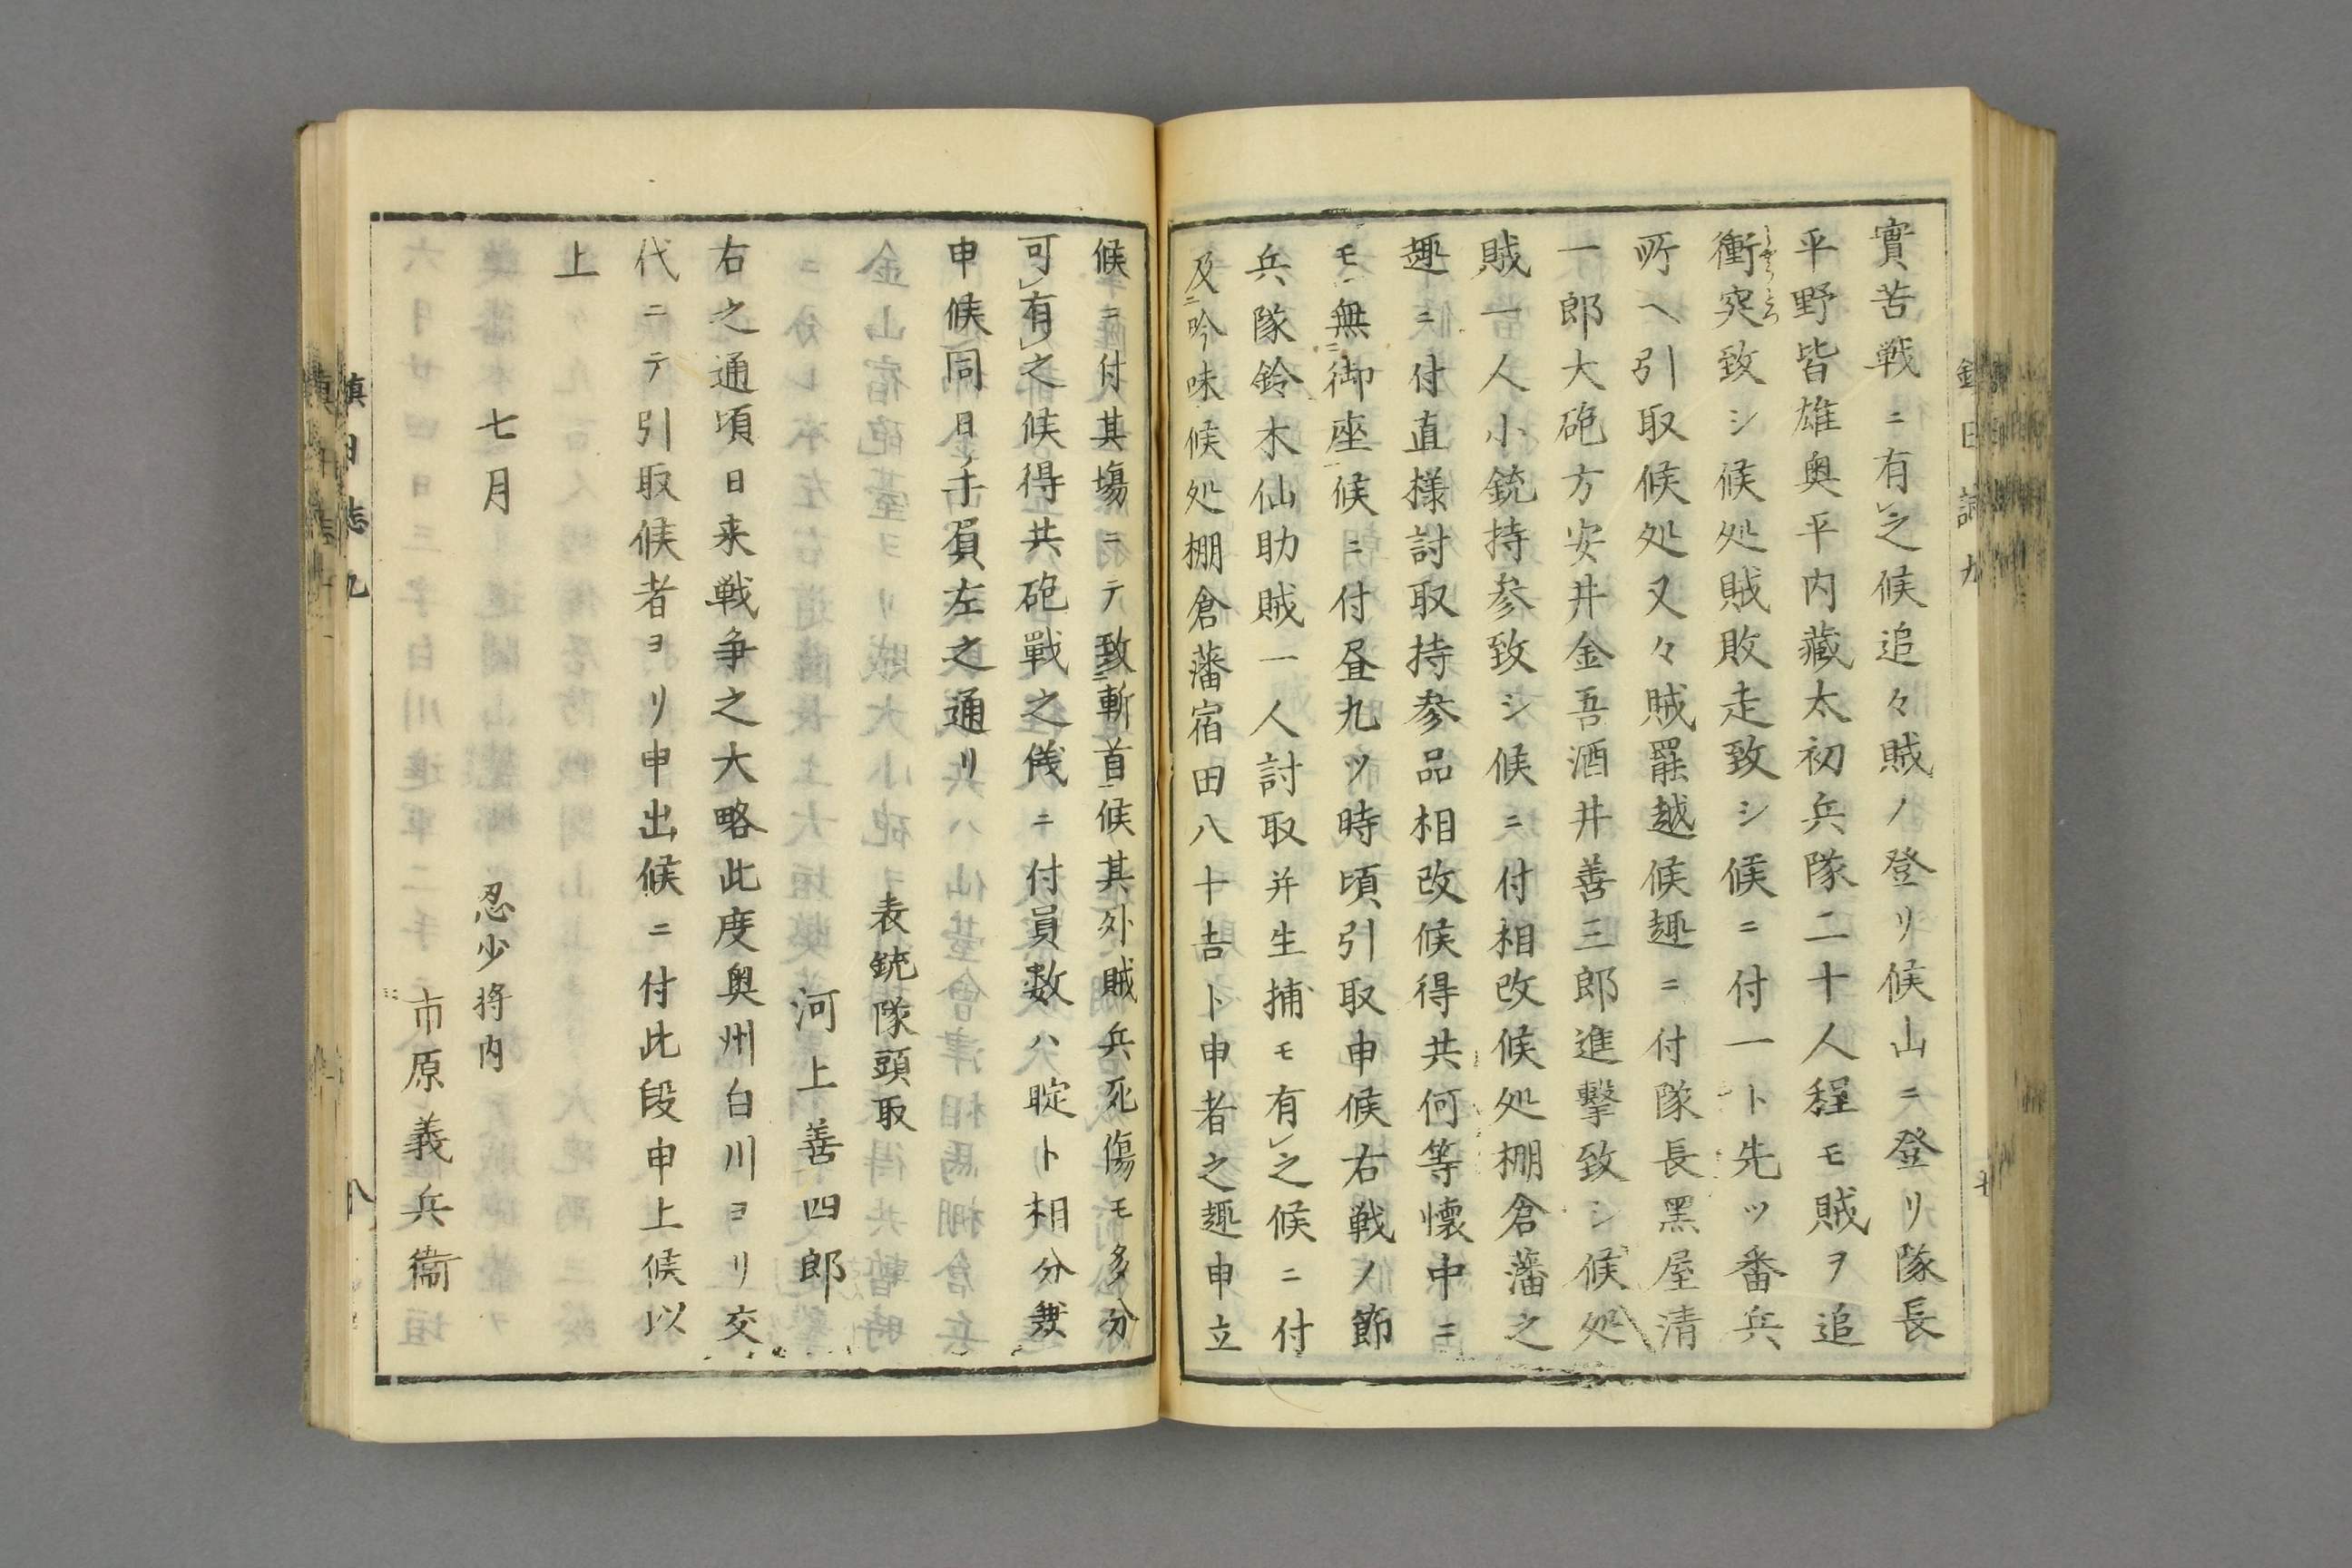 實苦戦ニ有之候追々賊ノ登リ候山ニ登リ隊長
平野皆雄奥平内藏太初兵隊二十人程モ賊ヲ追
衝突致シ候処賊敗走致シ候ニ付一ト先ツ番兵
所ヘ引取候処又々賊罷越候趣ニ付隊長黒屋清
一郎大砲方安井金吾酒井善三郎進擊致シ候処
賊一人小銃持参致シ候ニ付相改候処棚倉藩之
趣ニ付直様討取持参品相改候得共何等懐中ニ
モ無御座候ニ付昼九ツ時頃引取申候右戦ノ節
兵隊鈴木仙助賊一人討取并生捕モ有之候ニ付
及吟味候処棚倉藩宿田八十吉ト申者之趣申立
候ニ付其塲ニテ致斬首候其外賊兵死傷モ多分
可有之候得共砲戰之儀ニ付員数ハ睲ト相分兼
申候同日手負左之通リ
表銃隊頭取
河上善四郎
右之通頃日来戦争之大略此度奥州白川ヨリ交
代ニテ引取候者ヨリ申出候ニ付此段申上候以
上
七月　忍少将内
市原義兵衞
鎮日誌九
八